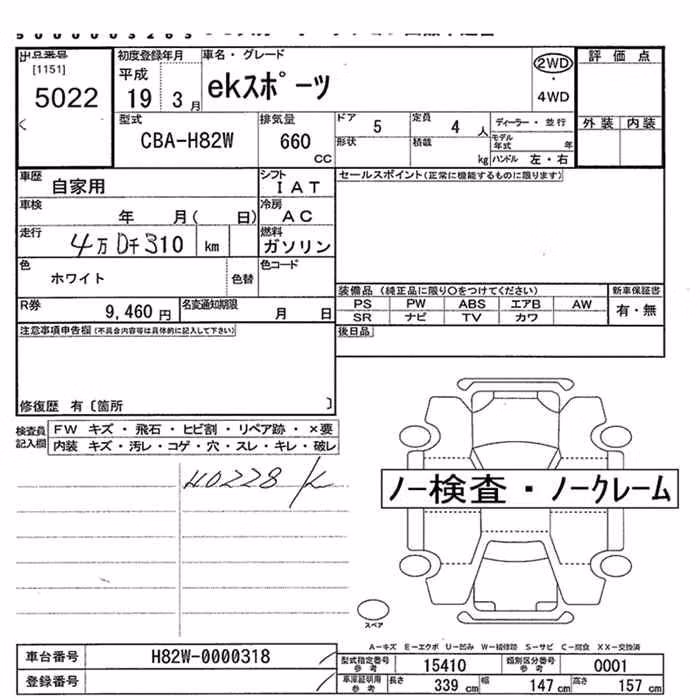 出品番号 初度登録年月 車名・グレード 評価点
[1151] 平成 ekスポーツ 2WD
5022 19 3月 ・ 4WD
型式 排気量 ドア 5 定員 4人 ディーラー・並行 外装 内装
CBA-H82W 660 cc 形状 積載 kg モデル年式 年
ハンドル 左・右
車歴 自家用 シフト IAT セールスポイント(正常に機能するものに限ります)
車検 年 月( 日) 冷房 AC
走行 km 燃料 ガソリン
色 ホワイト 色替 色コード
装備品(純正品に限り○をつけてください) 新車保証書
R券 9,460円 名変通知期限 月 日 PS PW ABS エアB AW 有・無
SR ナビ TV カワ
注意事項申告欄(不具合内容等は具体的に記入して下さい) 後日品
修復歴 有〔箇所 〕
検査員記入欄 FW キズ・飛石・ヒビ割・リペア跡・×要
内装 キズ・汚レ・コゲ・穴・スレ・キレ・破レ
40228
ノー検査・ノークレーム
スペア
A-キズ E-エクボ U-凹み W-補修跡 S-サビ C-腐食 XX-交換済
車台番号 H82W-0000318 型式指定番号参考 15410 類別区分番号参考 0001
登録番号 車庫証明用参考 長さ 339cm 幅 147cm 高さ 157cm